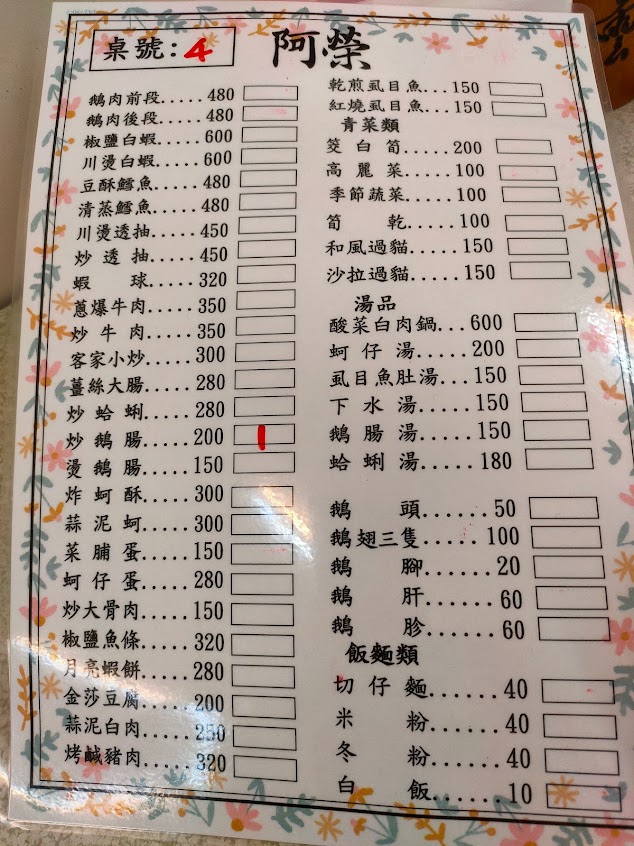 桌號:4
阿榮
鵝肉前段.....480
鵝肉後段.....480
椒鹽白蝦.....600
川燙白蝦.....600
豆酥鱈魚.....480
清蒸鱈魚.....480
川燙透抽.....450
炒透抽.....450
蝦球.....320
蔥爆牛肉.....350
炒牛肉.....350
客家小炒.....300
薑絲大腸.....280
炒蛤蜊.....280
炒鵝腸.....200
燙鵝腸.....150
炸蚵酥.....300
蒜泥蚵.....300
菜脯蛋.....150
蚵仔蛋.....280
炒大骨肉.....150
椒鹽魚條.....320
月亮蝦餅.....280
金莎豆腐.....200
蒜泥白肉.....250
烤鹹豬肉.....320
乾煎虱目魚...150
紅燒虱目魚...150
青菜類
筊白筍.....200
高麗菜.....100
季節蔬菜.....100
筍乾.....100
和風過貓.....150
沙拉過貓.....150
湯品
酸菜白肉鍋...600
蚵仔湯.....200
虱目魚肚湯...150
下水湯.....150
鵝腸湯.....150
蛤蜊湯.....180
鵝頭......50
鵝翅三隻.....100
鵝腳.......20
鵝肝......60
鵝胗......60
飯麵類
切仔麵......40
米粉......40
冬粉......40
白飯......10